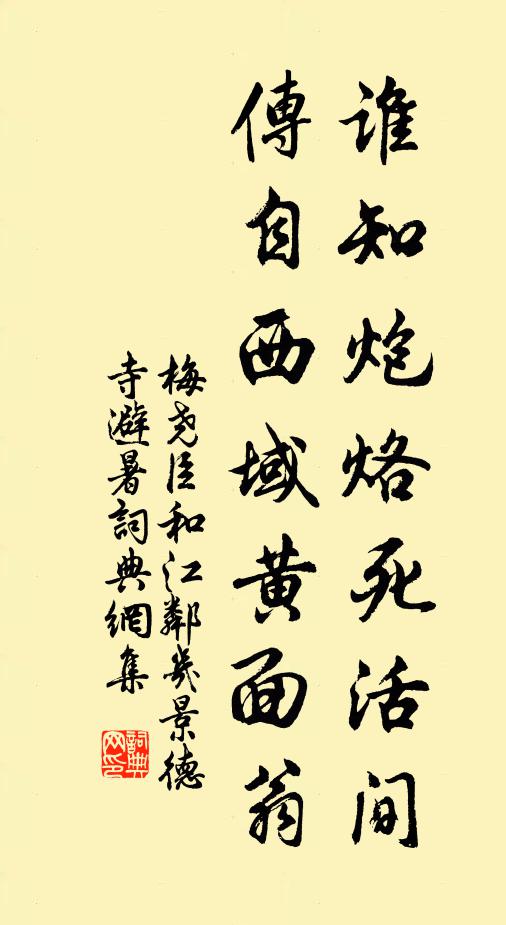 谁知炮烙死活间
傳自西域黄面翁
梅尧臣和江鄰幾景德
寺避暑詞典網集
詞典
网印